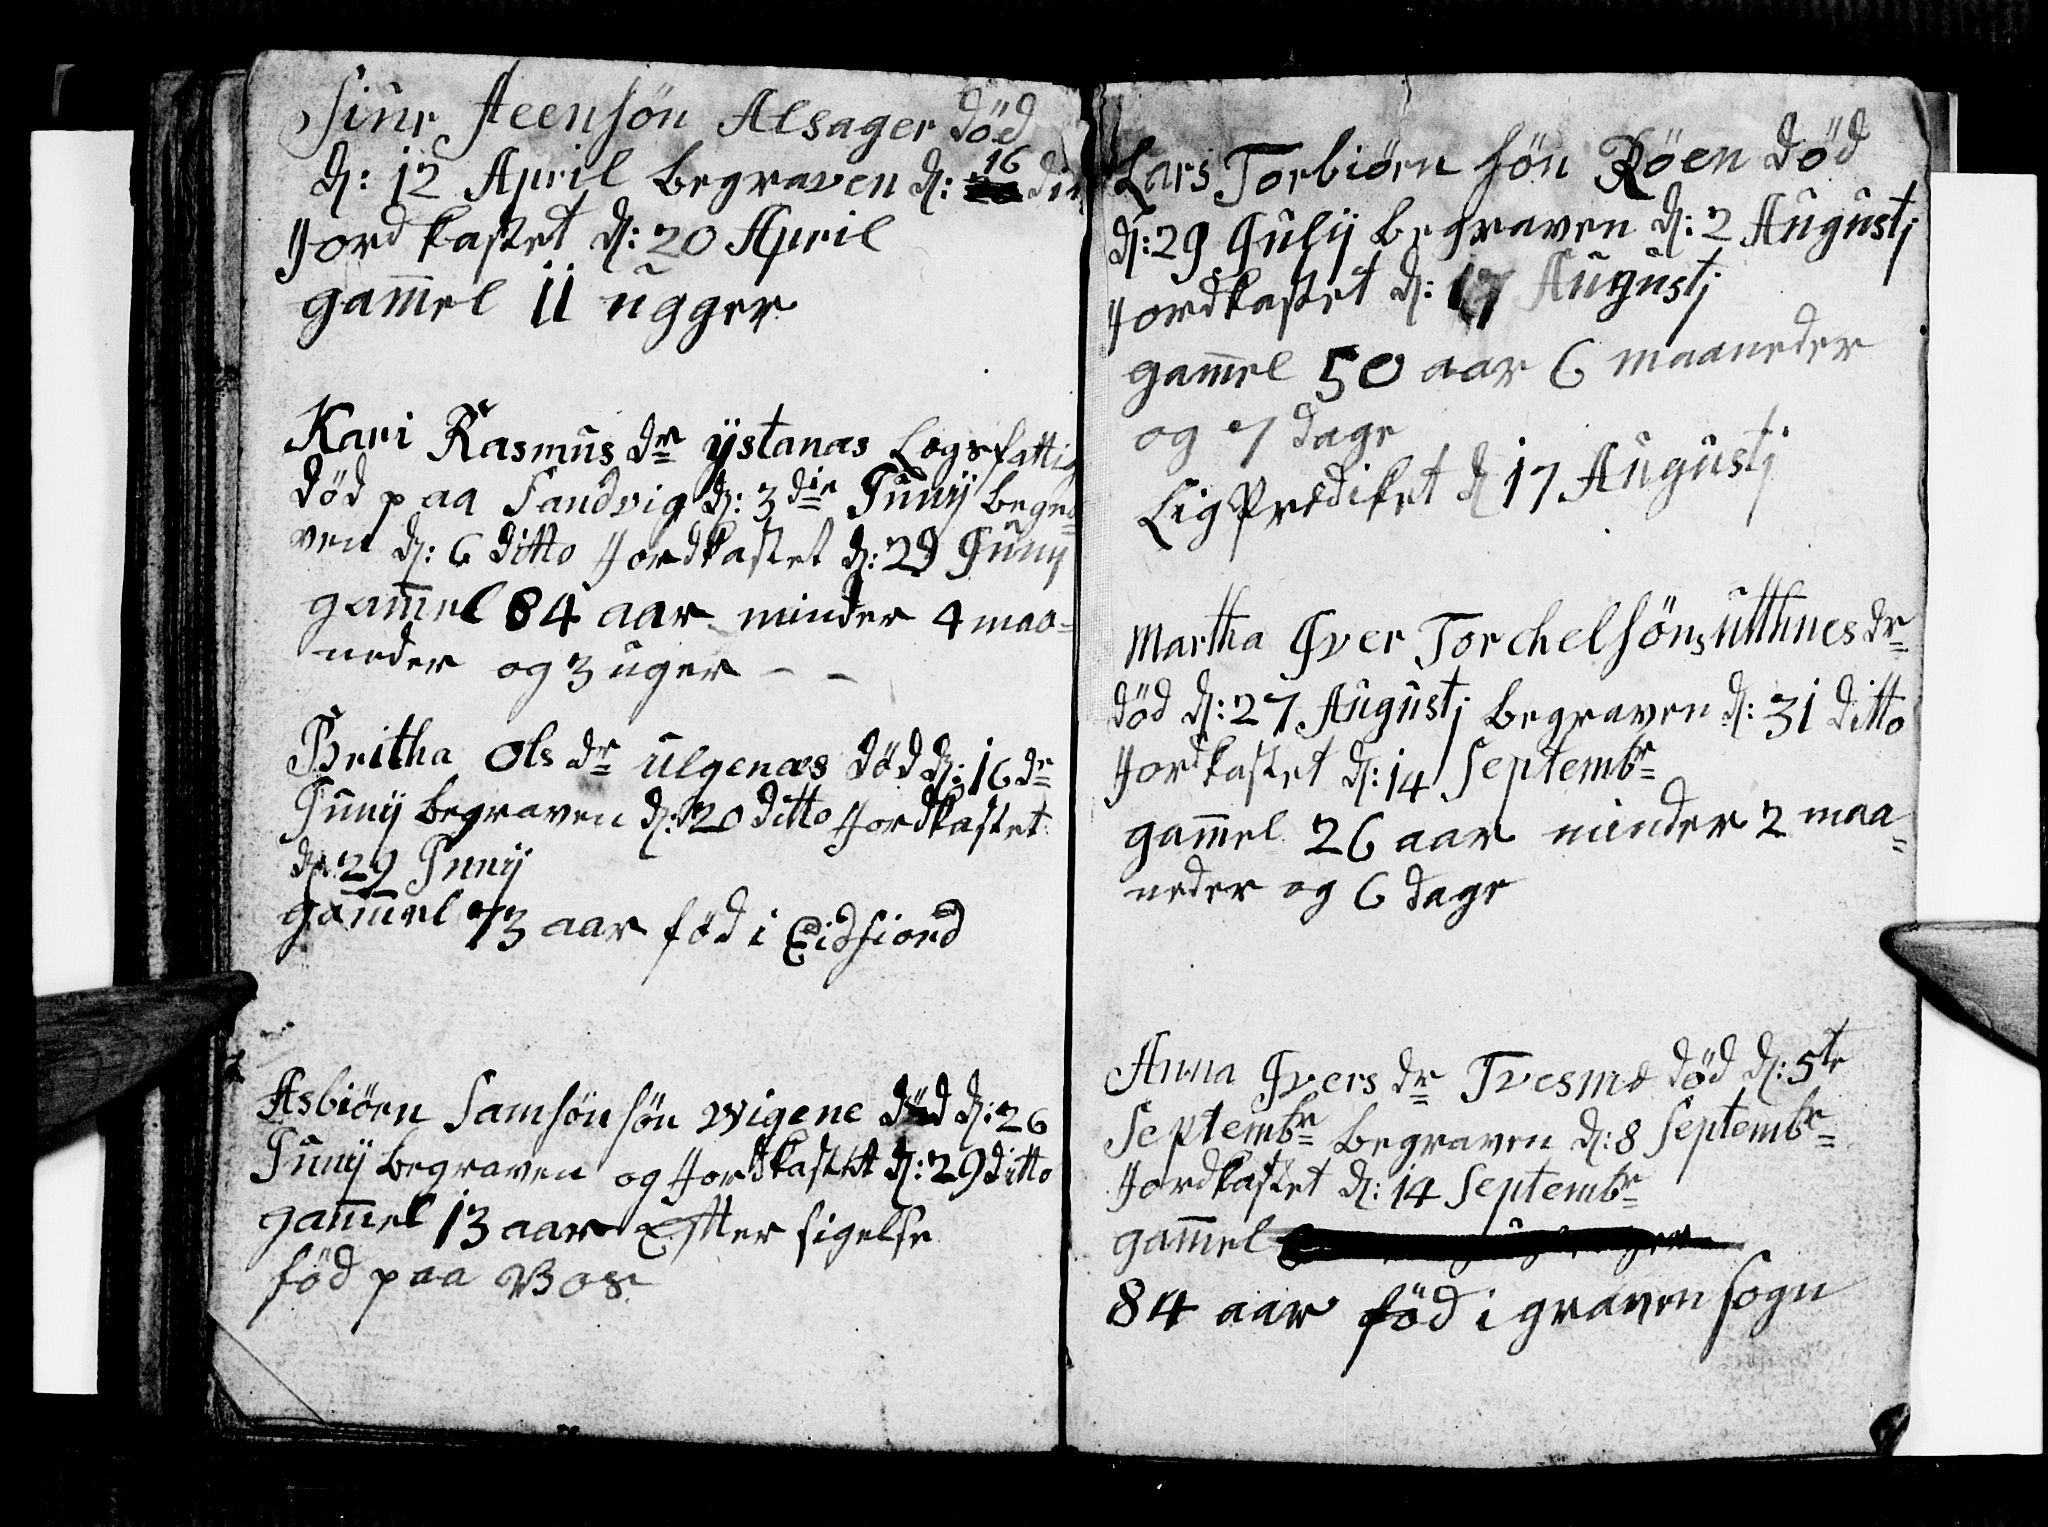 Siur Steensön Alsager död
d: 12 April begraven d: 16
Jordkastet d: 20 April
gam̅el 11 ugger
Kari Rasmus dr ystanæs Logsfattig
död paa Sandvig d: 3die Junij begra
ven d: 6 ditto Jordkastet d: 29 Junij
gam̅el 84 aar minder 4 maa=
neder og 3 uger - -
Britha Ols dr ulgenæs död d: 16de
Junij begraven d: 20 ditto Jordkastet
d: 29 Junij
gam̅el 73 aar föd i Eidfiord
Asbiörn Samsön sön wigene död d: 26
Junij begraven og Jordkastet d: 29 ditto
gam̅el 13 aar Efter sigelse
föd paa Vos
Lars Torbiörn sön Röen död
d: 29 Julij begraven d: 2 Augustj
Jordkastet d: 17 Augustj
gam̅el 50 aar 6 maaneder
og 7 dage
Lig Prediket d 17 Augustj
Martha Iver Torchelsöns utthnes dr
död d: 27 Augustj begraven d: 31 ditto
Jordkastet d: 14 Septembr
gam̅el 26 aar minder 2 maa=
neder og 6 dage
Anna Ivers dr Tvesme död d: 5te
Septembr begraven d: 8 Septembr
Jordkastet d: 14 Septembr
gam̅el
84 aar föd i graven sogn